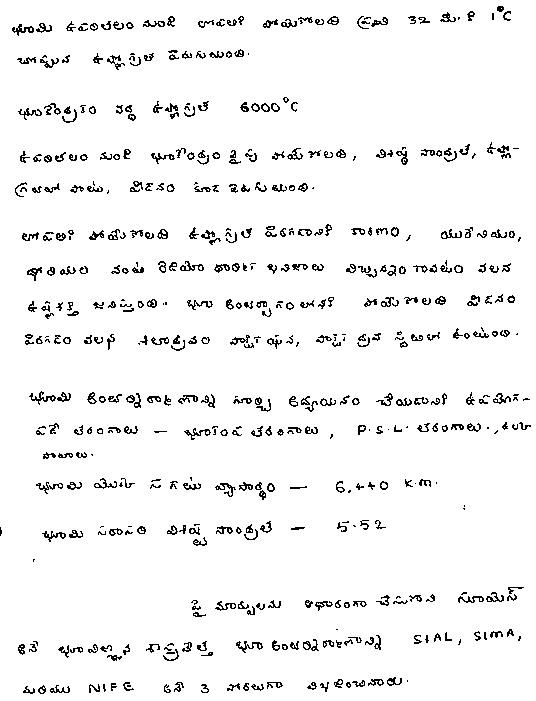 భూమి ఉపరితలం నుండి లోపలికి పోయేకొలది ప్రతి 32 మీ.కి 1°C
చొప్పున ఉష్ణోగ్రత పెరుగుతుంది.
భూకేంద్రం వద్ద ఉష్ణోగ్రత 6000°C
ఉపరితలం నుండి భూకేంద్రం వైపు పోయేకొలది, విశిష్ట సాంద్రత, ఉష్ణో-
గ్రతతో పాటు, పీడనం కూడ పెరుగుతుంది.
లోపలికి పోయేకొలది ఉష్ణోగ్రత పెరగడానికి కారణం, యురేనియం,
థోరియం వంటి రేడియో ధార్మిక ఖనిజాలు విచ్ఛిన్నం కావటం వలన
ఉష్ణశక్తి జనిస్తుంది. భూ అంతర్భాగంలోనికి పోయేకొలది పీడనం
పెరగడం వలన శిలాద్రవం పాక్షిక ఘన, పాక్షిక ద్రవ స్థితిలో ఉంటుంది.
భూమి అంతర్నిర్మాణాన్ని గూర్చి అధ్యయనం చేయడానికి ఉపయోగ-
పడే తరంగాలు — భూకంప తరంగాలు, P.S.L. తరంగాలు.,
భూమి యొక్క సగటు వ్యాసార్థం — 6,440 K.m.
భూమి సరాసరి విశిష్ట సాంద్రత — 5.52
పై మార్పులను ఆధారంగా చేసుకొని సూయెస్
అనే భూవిజ్ఞాన శాస్త్రవేత్త భూ అంతర్నిర్మాణాన్ని SIAL, SIMA,
మరియు NIFE అనే 3 పొరలుగా విభజించినారు.